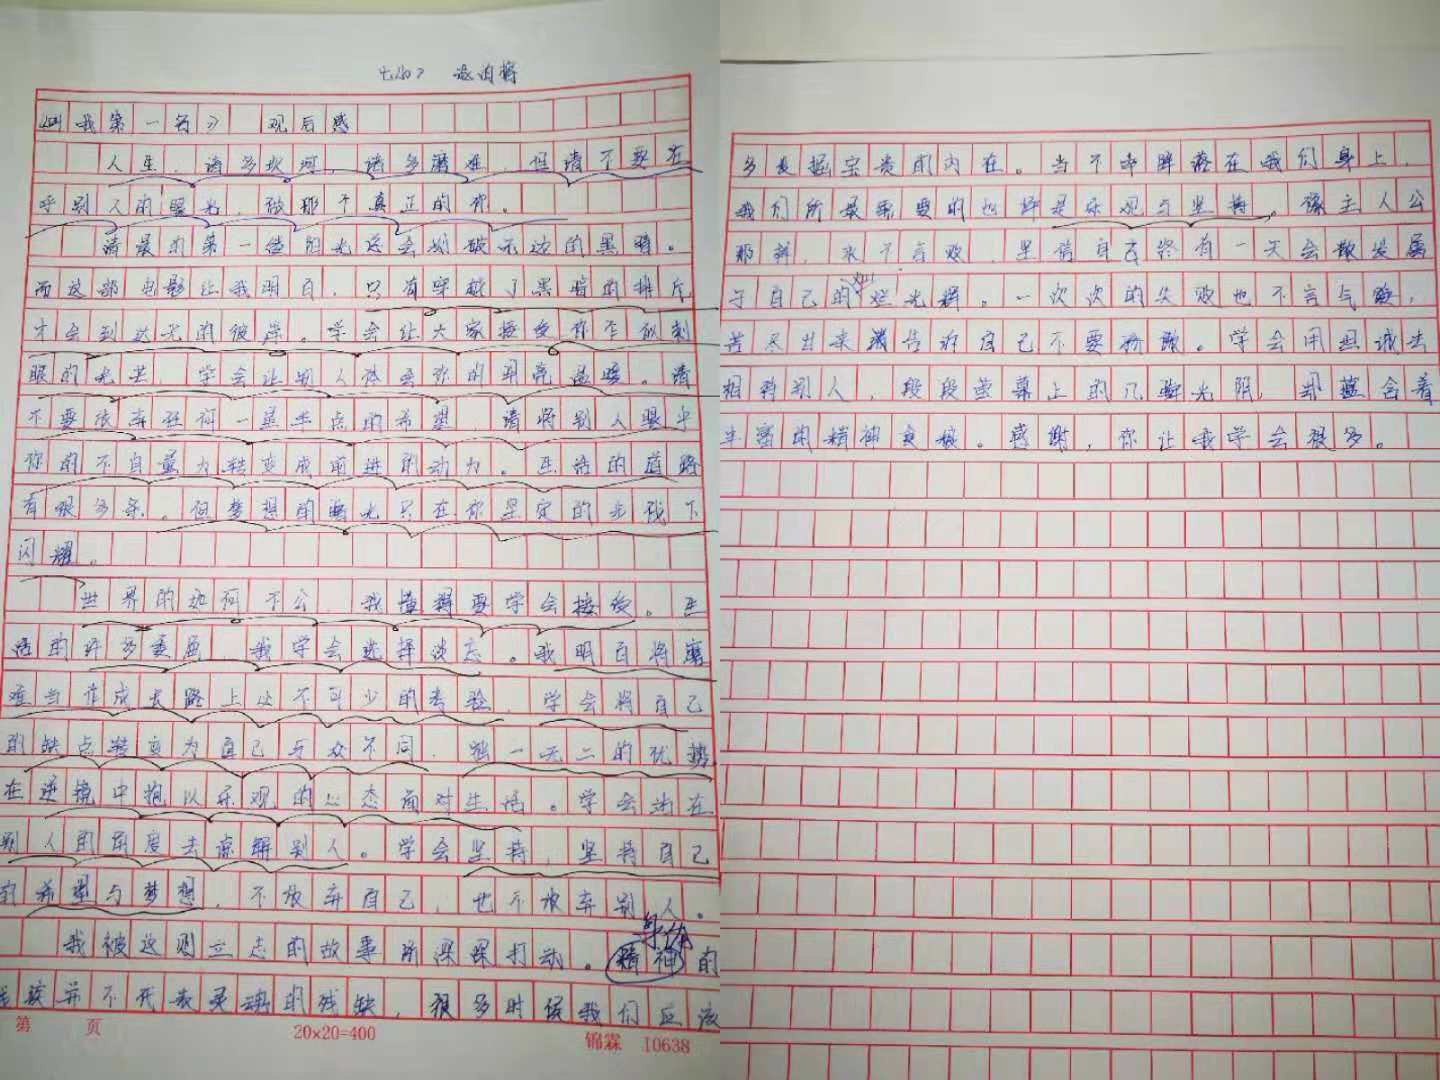 《叫我第一名》 观后感
人生，诸多坎坷，诸多磨难，但请不要在
乎别人的眼光，做那个真正的你。
清晨的第一缕阳光总会划破无边的黑暗。
而这部电影让我明白，只有穿越了黑暗的
才会到达光的彼岸。学会让大家接受你不似刺
眼的光芒 学会让别人体会你的 温暖。请
不要放弃任何一星半点的希望，请将别人眼中
你的不自量力转变成前进的动力。生活的道路
有很多条，但梦想的曙光只在你坚定的步伐下
闪耀。
世界的如何不公，我懂得要学会接受。生
活的许多委屈，我学会选择淡忘。我明白将磨
难当作成长路上必不可少的考验，学会将自己
的缺点转变为自己与众不同，独一无二的优势
在逆境中抱以乐观的心态面对生活。学会站在
别人的角度去谅解别人。学会坚持，坚持自己
的希望与梦想，不放弃自己，也不放弃别人。
身体
我被这则立志的故事所深深打动。精神的
并不代表灵魂的残缺，很多时候我们应该
第 页
20×20=400
锦霖 10638
多发掘宝贵的内在。当不幸降落在我们身上，
我们所最需要的也许是乐观与坚持。像主人公
那样，永不言败，坚信自己终有一天会散发属
于自己的灿烂光辉。一次次的失败也不言气馁，
苦尽甘来 告诉自己不要骄傲。学会用坦诚去
相待别人，段段萤幕上的 光阴，却蕴含着
丰富的精神 。感谢，你让我学会很多。